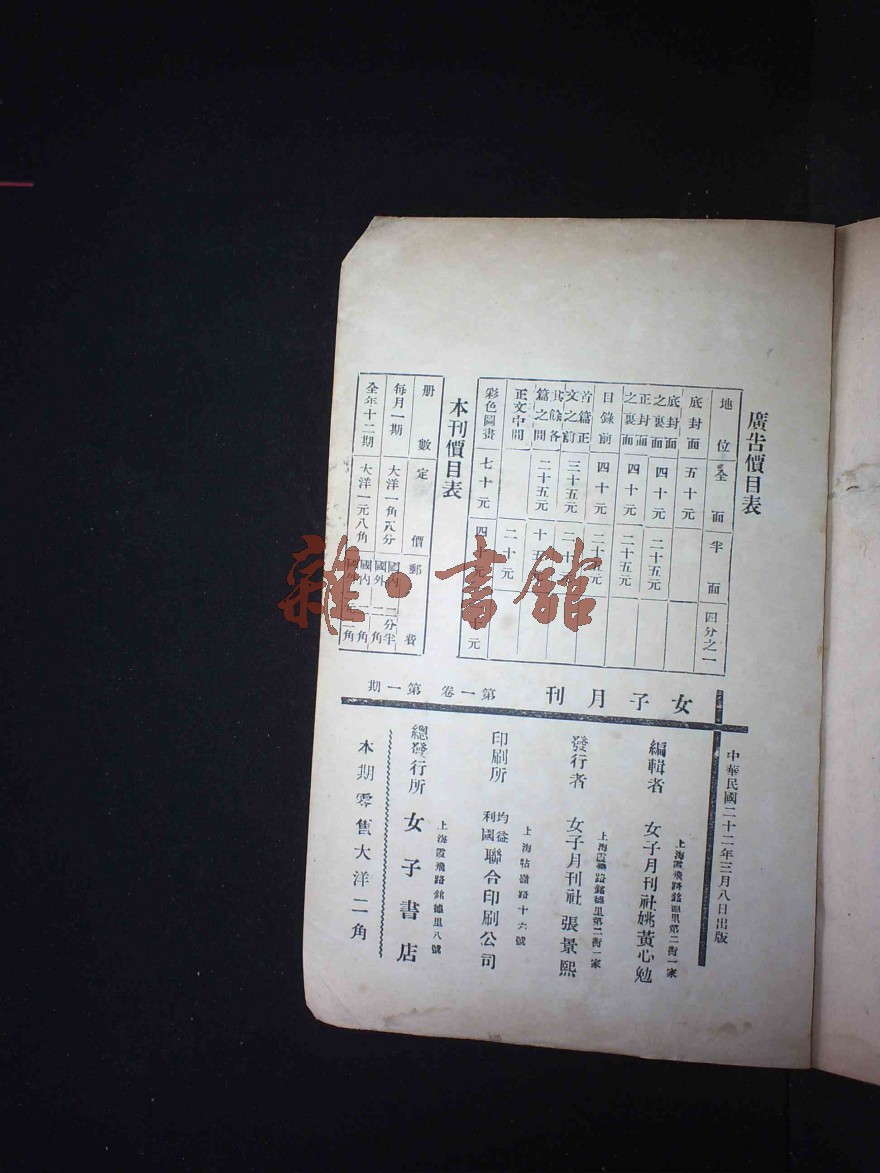 廣告價目表
地位 全面 半面 四分之一
底封面 五十元
底封面之裏面 四十元 二十五元
正封面之裏面 四十元 二十五元
目錄前 四十元 二十五元
首篇正文之前 三十五元 二十
其餘各篇之間 二十五元 十五元
正文中間 二十元
彩色圖畫 七十元 四十元 元
本刊價目表
册數 定價 郵費
每月一期 大洋一角八分 國內 二分半 國外 二角
全年十二期 大洋一元八角 國內 角 二角
女子月刊 第一卷 第一期
中華民國二十二年三月八日出版
編輯者 女子月刊社姚黃心勉
上海霞飛路銘德里第二街一家
發行者 女子月刊社 張景熙
上海霞飛路銘德里第二街一家
印刷所 均益利國聯合印刷公司
上海牯嶺路十六號
總發行所 女子書店
上海霞飛路銘德里八號
本期零售大洋二角
雜·書館